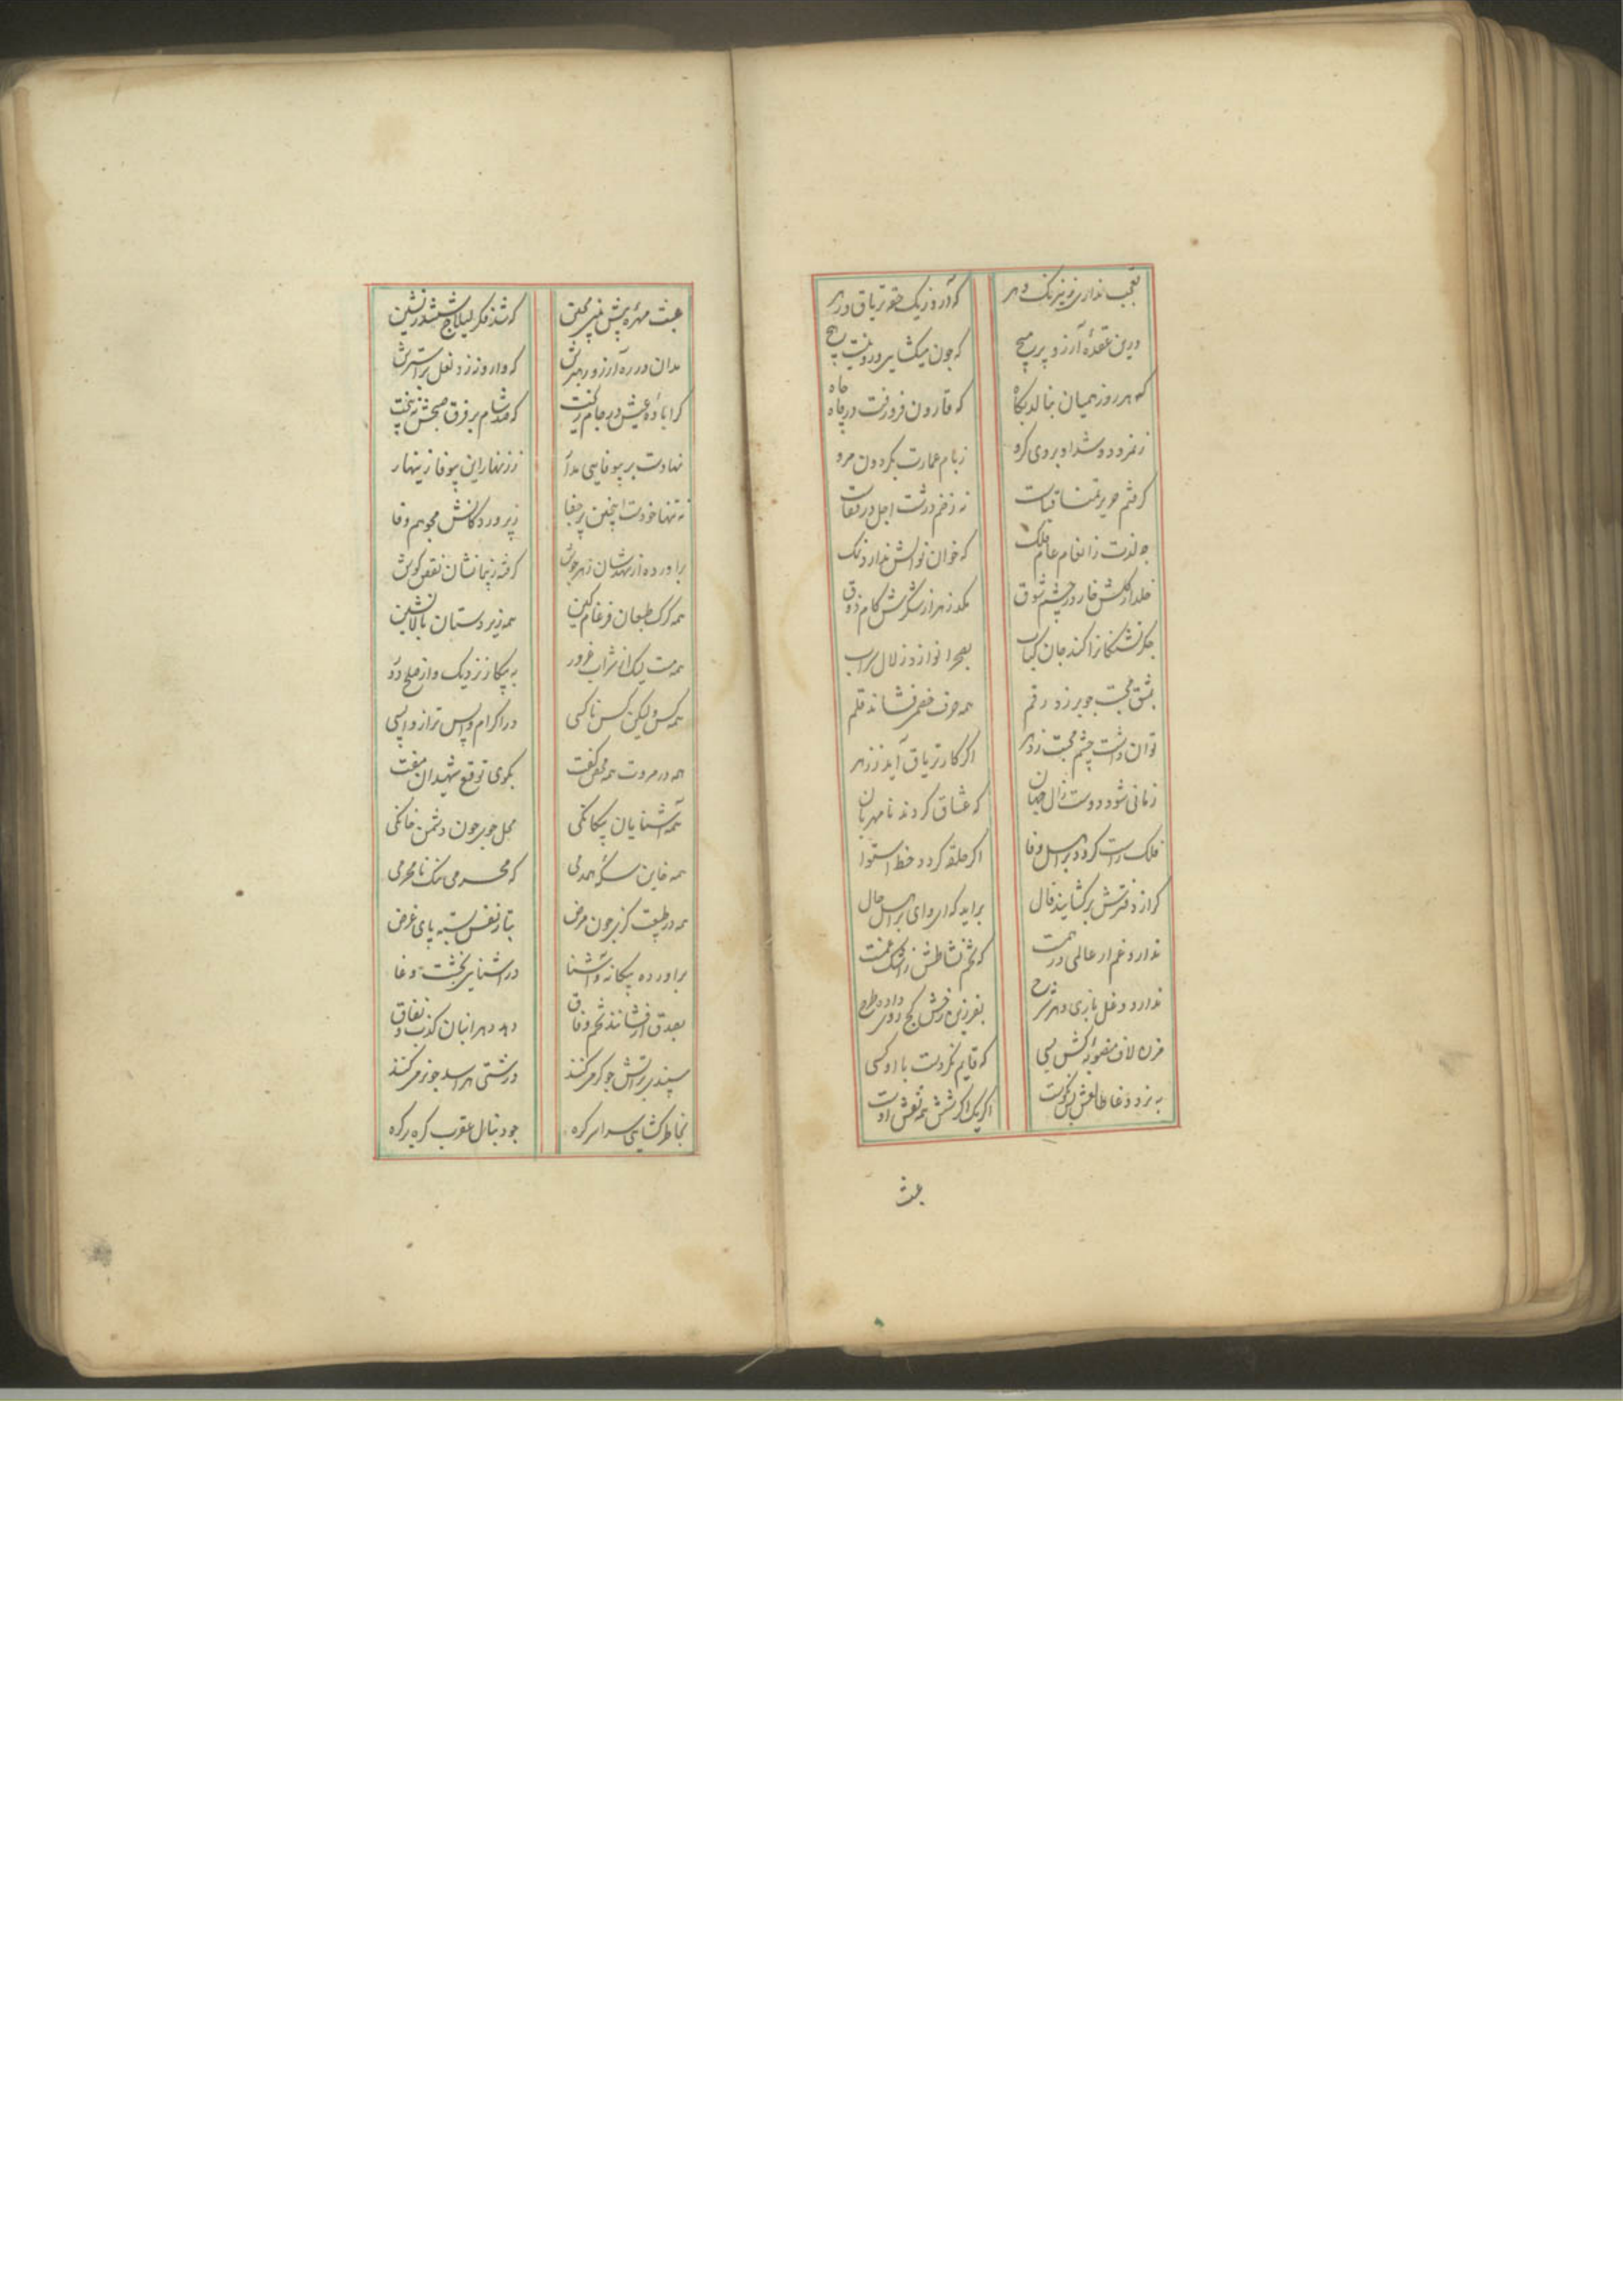 تعجب نداری ز نیرنک دهر که آرد ز یک حقه تریاق و زهر
درین عقدهٔ آرزو پر مپیچ که چون میکشایی درو نیست هیچ
که هر روز همیان بنالد بکاه که قارون فرو رفت در چاه
ز نمرود و شداد بر وی کرو ز بام عمارت بکردون مرو
کرفتم حریر تمنا قبات نه زخم درشت اجل در قفات
چه لذت ز انعام عام فلک که خوان نوالش ندارد نمک
خلد از کلش خار در چشم شوق مکد زهر از شکرش کام ذوق
جکر تشنکانرا کند جان کباب بصحرا نوازد زلال سراب
بمشق محبت چو برزد رقم همه حرف خصمی فشاند قلم
توان داشت چشم محبت ز دهر اکر کار تریاق آید ز زهر
زمانی شود دوست زال جهان که عشاق کردند نامهربان
فلک راست کردد بر اهل وفا اکر حلقه کردد خط استوا
کر از دفترش برکشایند فال براید که ای وای بر اهل حال
ندارد غم ار عالمی در همست که تخم نشاطش ز اشک غمست
ندارد دغل بازی دهر شرح بفرزین روش کج روی داده طرح
مزن لاف منصوبه اکش بسی که قایم نکردست با او کسی
به نرد دغا طالعش بس نکوست اکر یک اکر شش همه نقش اوست
عبث
عبث مهرهٔ پیش مپیر مچین که شد فکر لیلاج ششدر نشین
مدان در ره آرزو رهبرش که وارونه زد نعل بر استرش
کرا بادهٔ عیش در جام ریخت که صد شام بر فرق صبحش نبیخت
نهادت بر بیوفایی مدار ز زنهار این بیوفا زینهار
نه تنها خودست اینچنین پر جفا ز پروردکانش مجو هم وفا
براورده از شهدشان زهر جوش کرفته ز پیمانشان نقض کوش
همه کرک طبعان ضرغام کین همه زیر دستان بالانشین
همه مست لیک از شراب غرور به پیکار نزدیک و از صلح دور
همه کس ولیکن کس ناکسی در اکرام واپس تر از واپسی
همه در مروت همه محض کفت بکوی توقع شهیدان مفت
همه آشنایان بیکانکی محل جوی چون دشمن خانکی
همه خاین سکهٔ همدمی که محرمی ننک نامحرمی
همه در طبیعت کزیر چون مرض بتار نفس بسته پای غرض
براورده بیکانه و آشنا در آشنایی بخشت دغا
بصدق ار فشانند تخم وفاق دهد بهر انبان کذب و نفاق
سپندی بر آتش جو کرمی کنند درشتی هراسد جو نرمی کنند
بخاطر کشایی سراسر کره جو دنبال عقرب کره بر کره